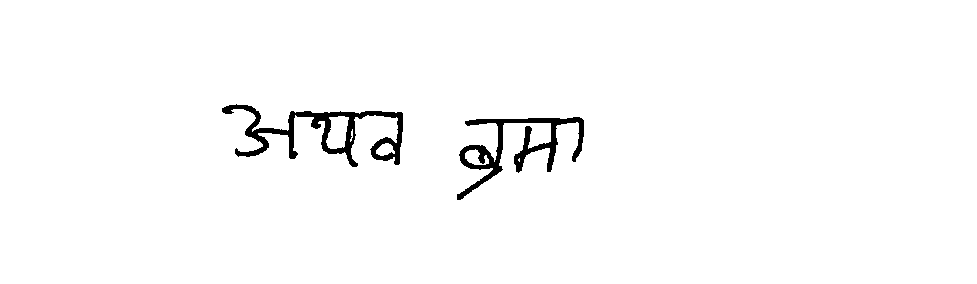 अथव ब्रमा